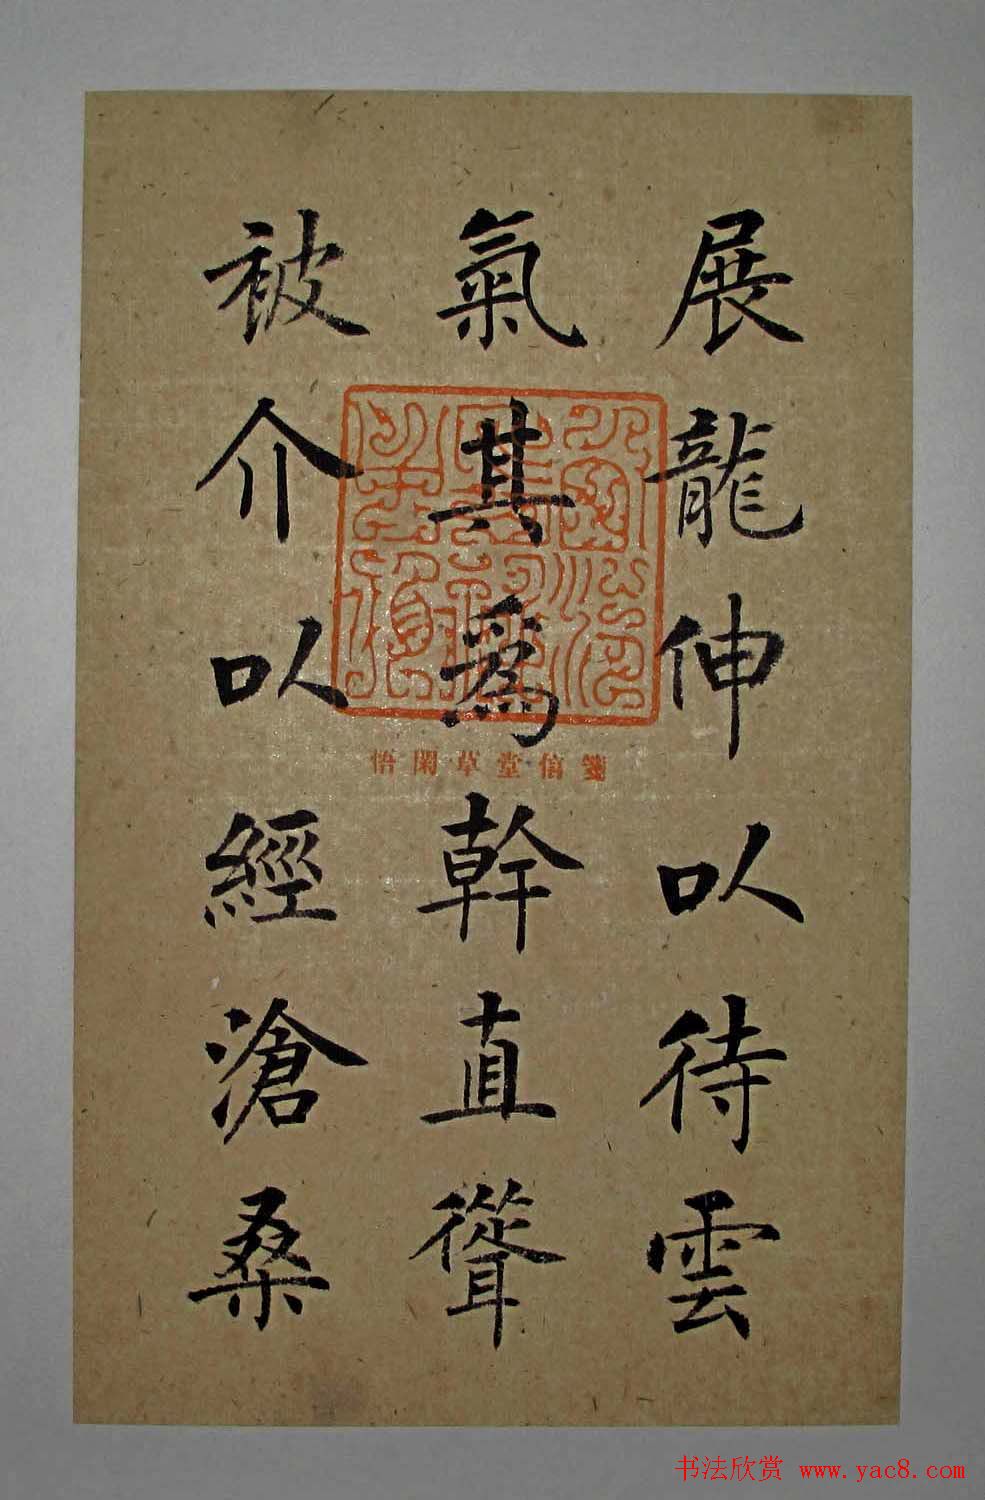 展龍伸以待雲
氣其為幹直聳
被介以經滄桑
悟閑草堂信箋
书法欣赏 www.yac8.com